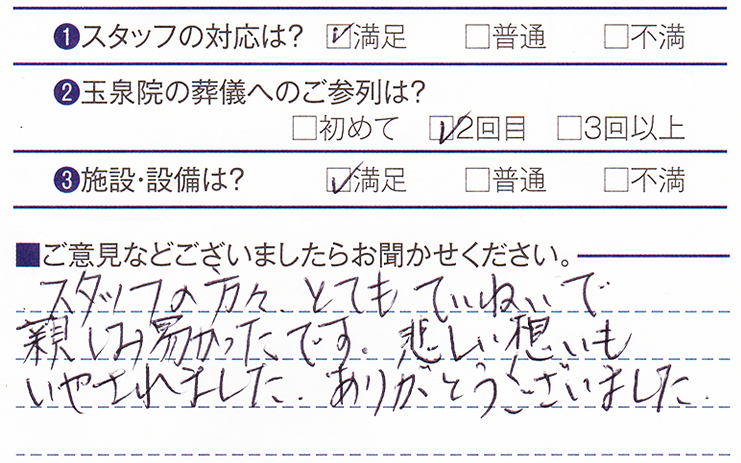 ❶スタッフの対応は? ☑満足 □普通 □不満
❷玉泉院の葬儀へのご参列は?
□初めて ☑2回目 □3回以上
❸施設・設備は? ☑満足 □普通 □不満
■ご意見などございましたらお聞かせください。
スタッフの方々、とてもていねいで
親しみ易かったです。悲しい想いも
いやされました。ありがとうございました。